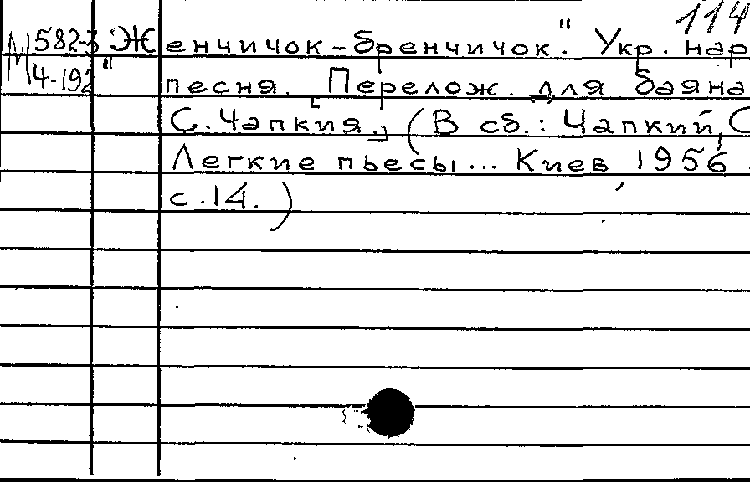 114
М 582-3 "Женчичок-бренчичок". Укр. нар
4-192 песня. Перелож. для баяна
С. Чапкия. (В сб.: Чапкий, С
Легкие пьесы... Киев, 1956.
с.14.)